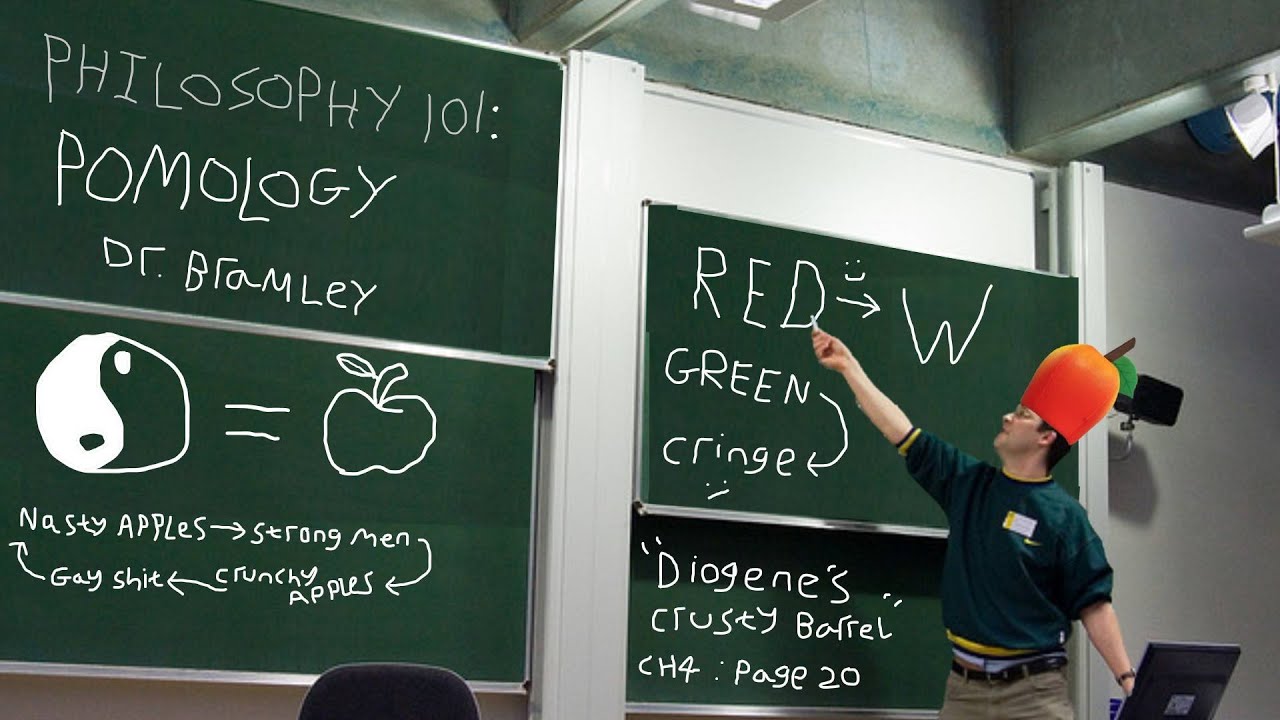 PHILOSOPHY 101:
POMOLOGY
Dr. BramLey
=
Nasty APPLES → strong men
Gay shit ← crunchy APPLES
RED → W
GREEN
cringe
"Diogene's
crusty Barrel"
CH4 : Page 20